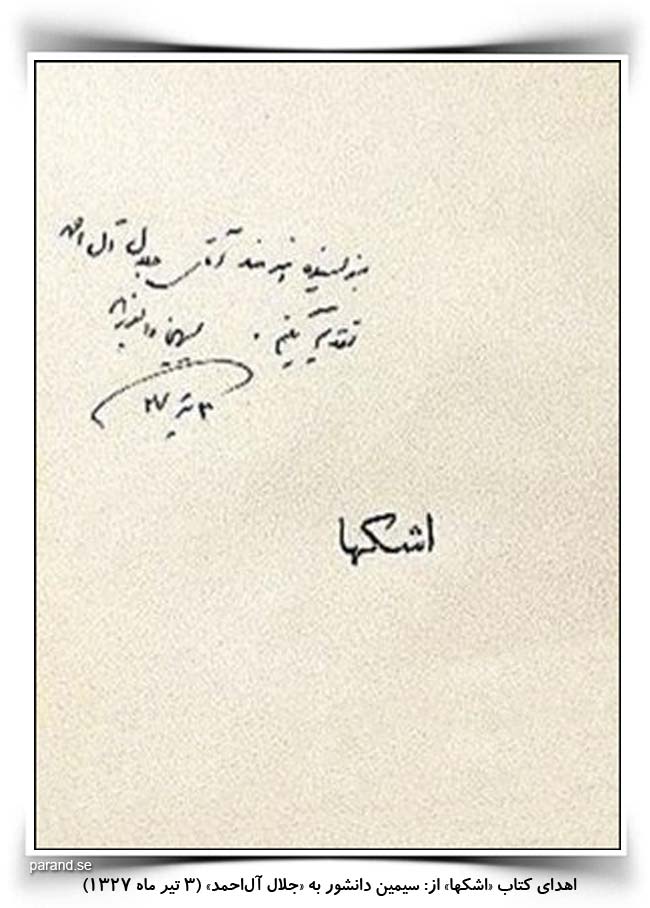 بنویسنده هنرمند آقای جلال آل احمد
تقدیم می‌کنم. سیمین دانشور
۳ تیر ۲۷
اشکها
parand.se
اهدای کتاب «اشکها» از: سیمین دانشور به «جلال آل‌احمد» (۳ تیر ماه ۱۳۲۷)